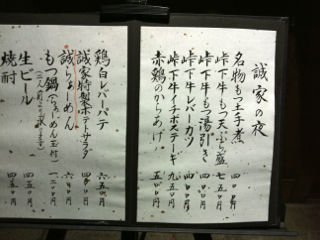 誠家の夜
名物もつ土手煮 四〇〇円
峠下牛もつ天ぷら盛 七五〇円
峠下牛もつ湯引き 四〇〇円
峠下牛レバーカツ 四〇〇円
峠下牛イチボステーキ 九五〇円
赤鶏のからあげ 五〇〇円
鶏白レバーパテ 六五〇円
誠家特製ポテトサラダ 四〇〇円
誠らぁーめん 六〇〇円
もつ鍋(らぁーめん玉付) 一三〇〇円
生ビール 四五〇円
焼酎 四五〇円